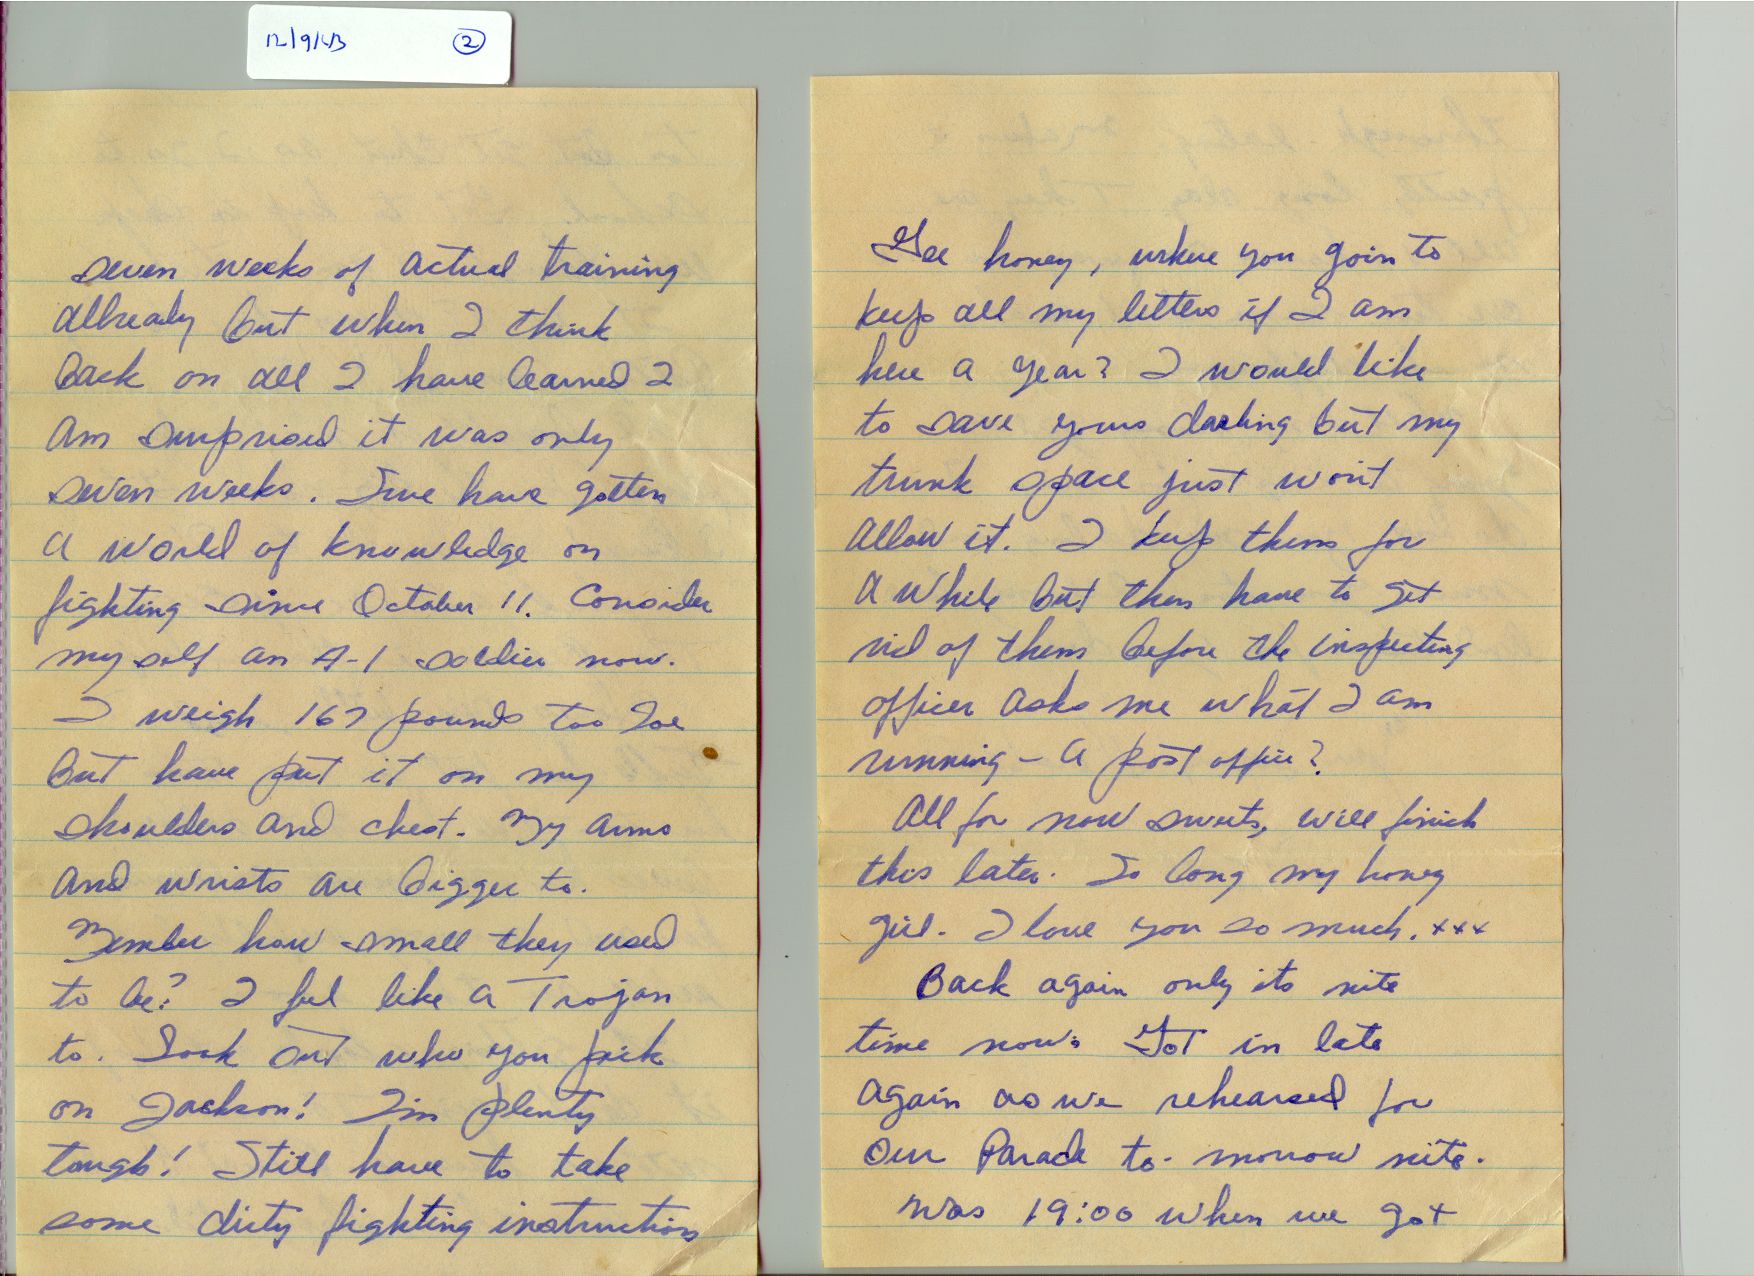 12/9/43 2
seven weeks of actual training
allready but when I think
back on all I have learned I
am surprised it was only
seven weeks. Sure have gotten
a world of knowledge on
fighting since October 11. Consider
my self an A-1 soldier now.
I weigh 167 pounds too Joe
but have put it on my
shoulders and chest. My arms
and wrists are bigger to.
Member how small they used
to be? I feel like a Trojan
to. Look out who you pick
on Jackson! I'm plenty
tough! Still have to take
some dirty fighting instruction
Gee honey, where you goin to
keep all my letters if I am
here a year? I would like
to save yours darling but my
trunk space just won't
allow it. I keep them for
a while but then have to get
rid of them before the inspecting
officer asks me what I am
running - a post office?
All for now sweets, will finish
this later. So long my honey
girl. I love you so much. xxx
Back again only its nite
time now. Got in late
again as we rehearsed for
our Parade to-morrow nite.
Was 19:00 when we got